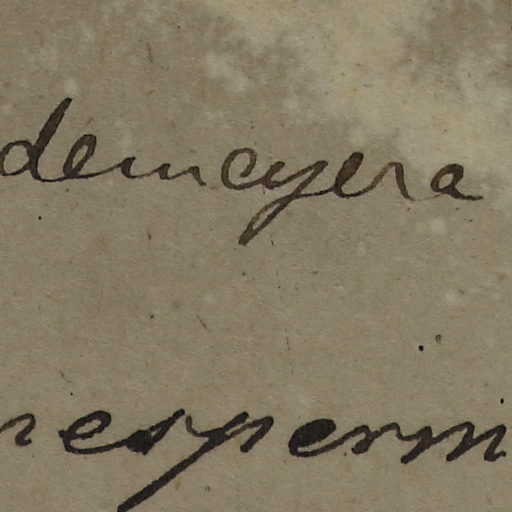 demeyera
nesperm